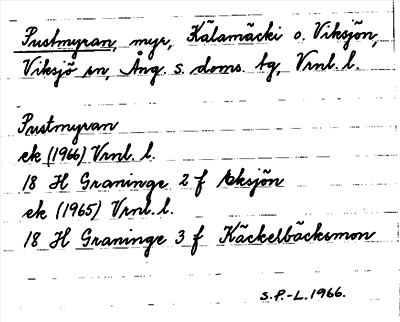 Pustmyran, myr, Kälamäcki o. Viksjön,
Viksjö sn, Ång. s. doms. tg, Vrnl. l.
Pustmyran
ek (1966) Vrnl. l.
18 H Graninge 2 f
ek (1965) Vrnl. l.
18 H Graninge 3 f Käckelbäcksmon
S.P.-L. 1966.